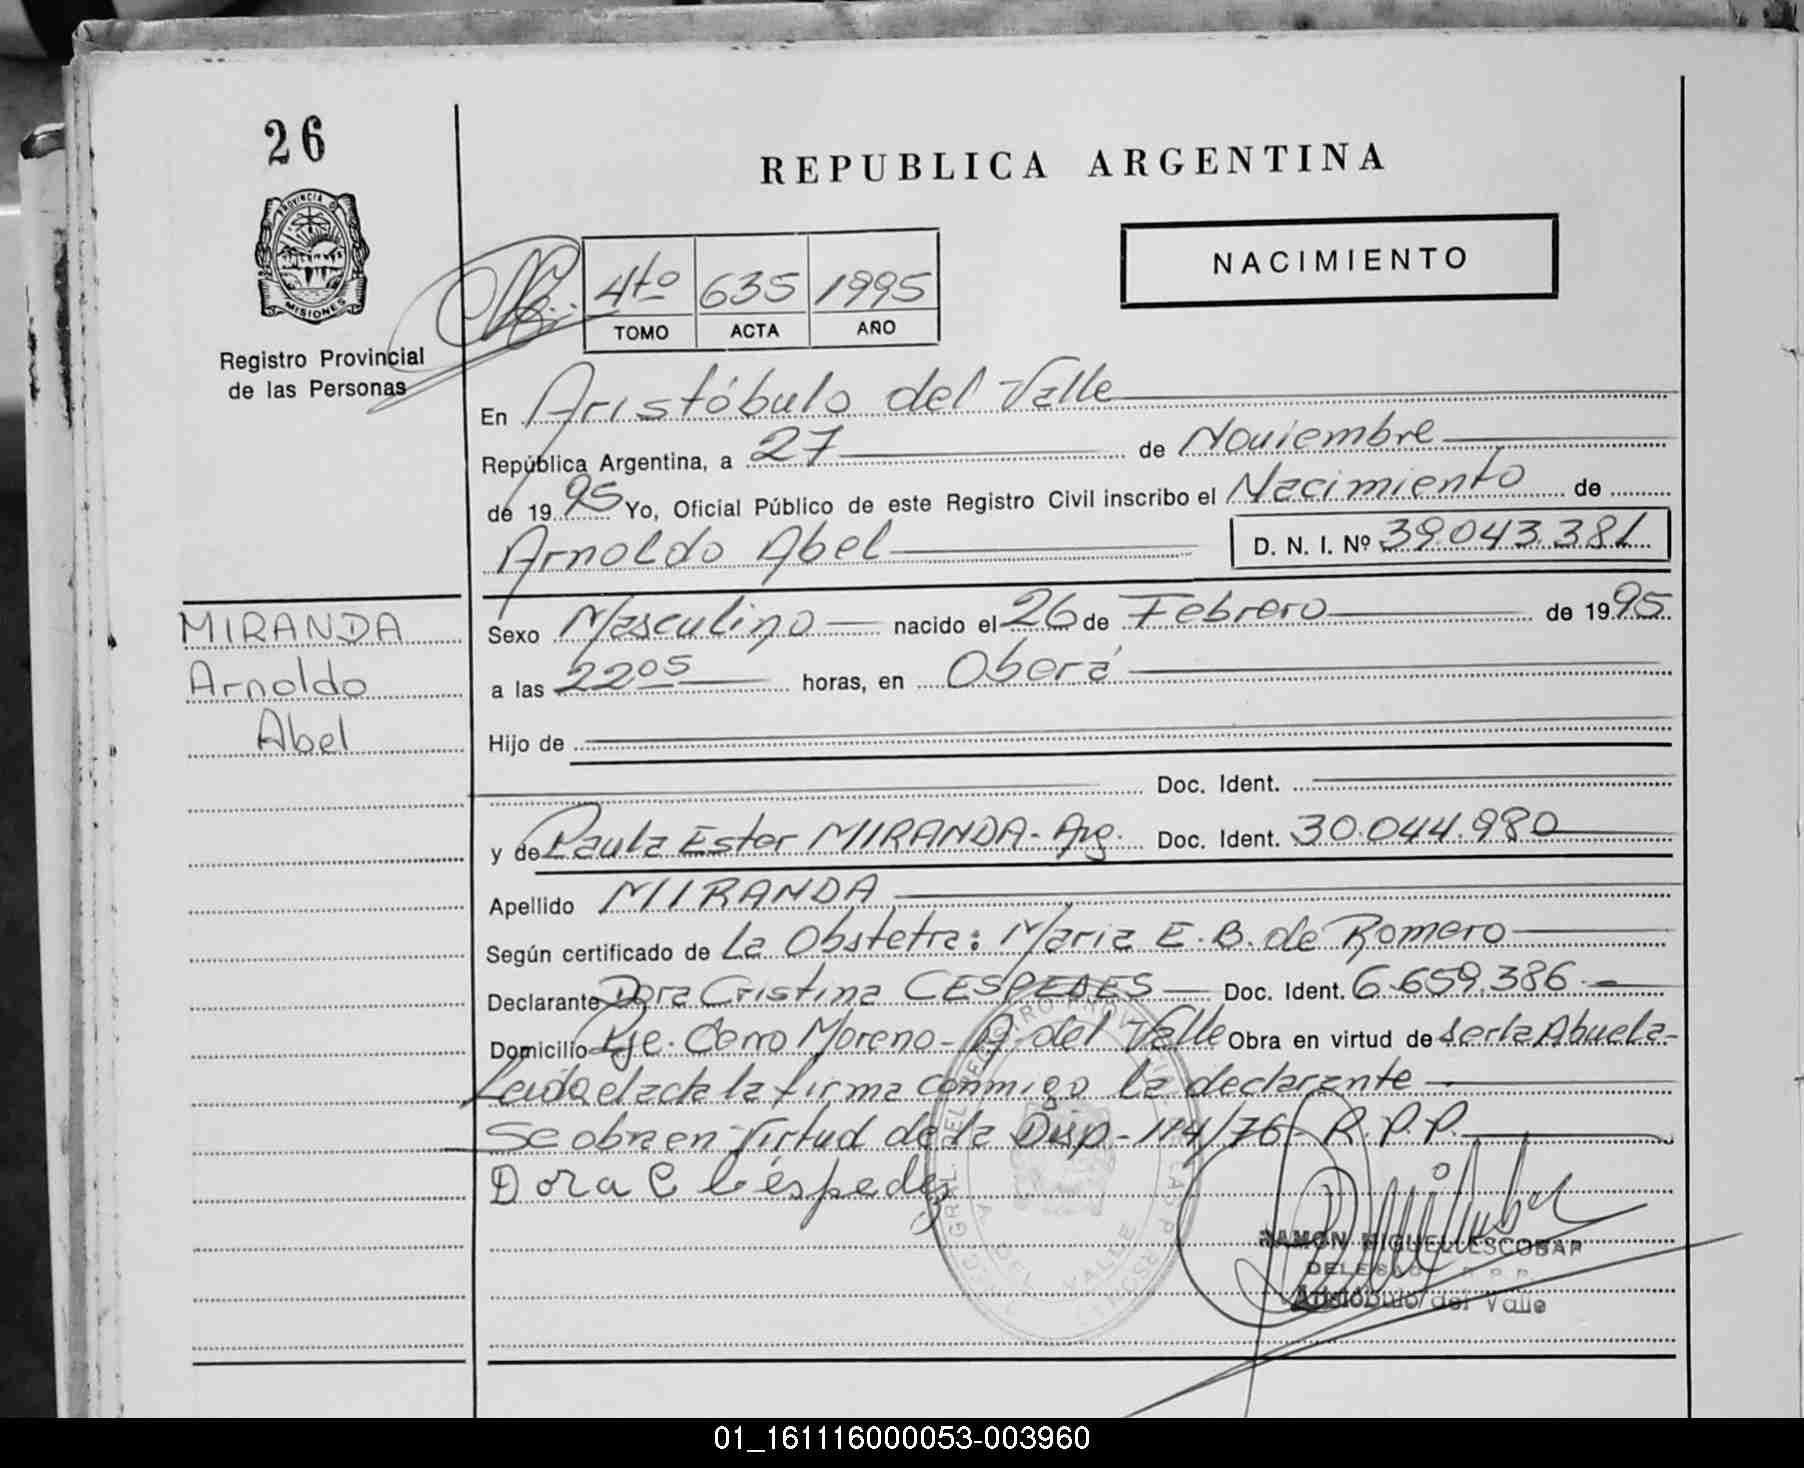 26
PROVINCIA DE
MISIONES
Registro Provincial
de las Personas
REPUBLICA ARGENTINA
NACIMIENTO
4to 635 1995
TOMO ACTA AÑO
En Aristóbulo del Valle
República Argentina, a 27 de Noviembre
de 1995 Yo, Oficial Público de este Registro Civil inscribo el Nacimiento de
Arnoldo Abel D. N. I. Nº 39.043.381
MIRANDA
Arnoldo
Abel
Sexo Masculino nacido el 26 de Febrero de 1995
a las 22 05 horas, en Oberá
Hijo de
Doc. Ident.
y de Paula Ester MIRANDA - Arg. Doc. Ident. 30.044.980
Apellido MIRANDA
Según certificado de La Obstetra: Maria E. B. de Romero
Declarante Dora Cristina CESPEDES Doc. Ident. 6.659.386
Domicilio Pje. Cerro Moreno - A. del Valle Obra en virtud de ser la Abuela-
Leida el acta la firma conmigo la declarante
Se obra en virtud de la Disp - 114/76 - R.P.P.
Dora C Céspedes
RAMON MIGUEL ESCOBAR
DELEGADO R.P.P.
Aristóbulo del Valle
01_161116000053-003960